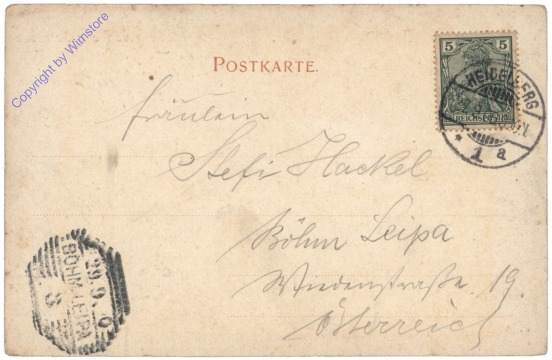 Copyright by Wimstore
POSTKARTE.
5
REICHSPOST
HEIDELBERG
1 a
Fräulein
Stefi Hackel
Böhm Leipa
Wiedenstraße 19.
Österreich
29.9.
BÖHM. LEIPA